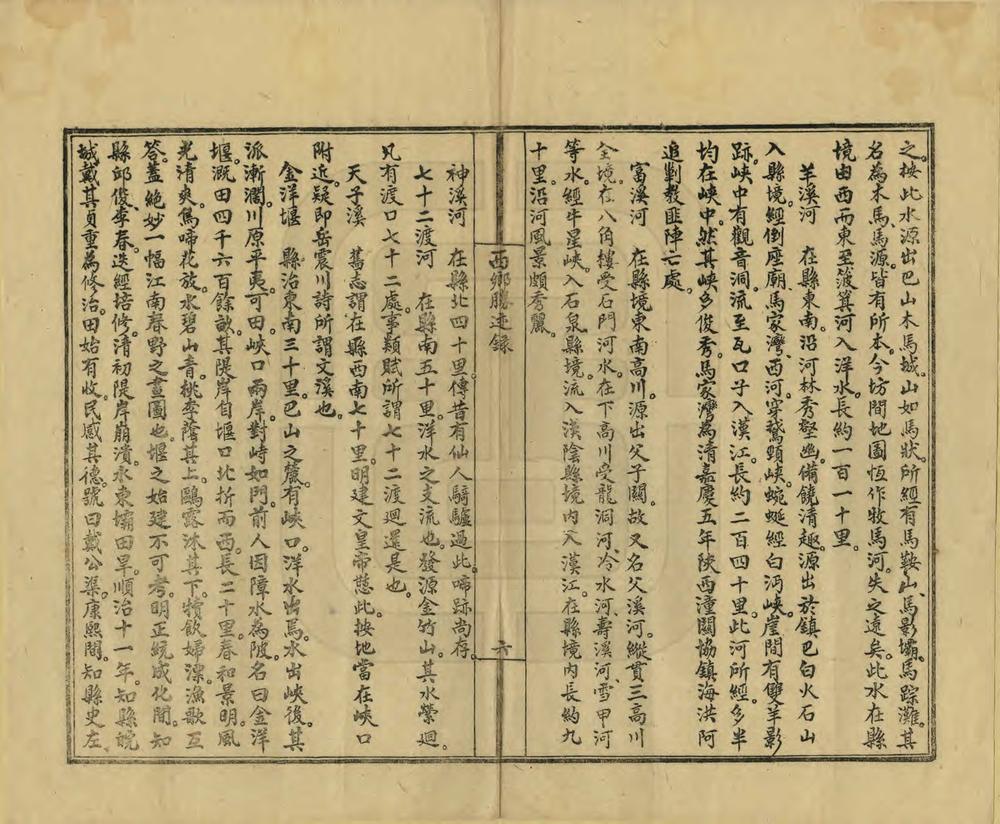 之。按此水源出巴山木馬城。山如馬狀。所經有馬鞍山、馬影壩、馬踪灘。其
名為木馬。馬源皆有所本。今坊間地圖恆作牧馬河。失之遠矣。此水在縣
境由西而東至筬箕河入洋水。長約一百一十里。
羊溪河　在縣東南。沿河林秀壑幽。備饒清趣。源出於鎮巴白火石山
入縣境。經倒座廟、馬家灣、西河、穿鵞頸峽。蜿蜒經白沔峽。崖間有雙羊影
跡。峽中有觀音洞。流至瓦口子入漢江。長約二百四十里。此河所經。多半
均在峽中。然其峽多俊秀。馬家灣為清嘉慶五年陝西潼關協鎮海洪阿
追剿教匪陣亡處。
富溪河　在縣境東南高川。源出父子關。故又名父溪河。縱貫三高川
全境。在八角樓受石門河水。在下高川受龍洞河、冷水河、壽溪河、雪甲河
等水。經牛星峽。入石泉縣境。流入漢陰縣境內。入漢江。在縣境內長約九
十里。沿河風景頗秀麗。
西鄉勝迹錄
六
神溪河　在縣北四十里。傳昔有仙人騎驢過此。啼跡尚存。
七十二渡河　在縣南五十里。洋水之支流也。發源金竹山。其水縈迴。
凡有渡口七十二處。事類賦所謂七十二渡迴還是也。
天子溪　舊志謂在縣西南七十里。明建文皇帝憇此。按地當在峽口
附近。疑即岳震川詩所謂文溪也。
金洋堰　縣治東南三十里。巴山之麓。有峽口。洋水出焉。水出峽後。其
派漸濶。川原平夷。可田。峽口兩岸。對峙如門。前人因障水為陂。名曰金洋
堰。溉田四千六百餘畝。其隄岸自堰口北折而西。長二十里。春和景明。風
光清爽。鳥啼花放。水碧山青。桃李蔭其上。鷗露沐其下。犢飲婦漂。漁歌互
答。葢絕妙一幅江南春野之畫圖也。堰之始建不可考。明正統成化間。知
縣邱俊、李春。迭經培修。清初隄岸崩潰。水東壩田旱。順治十一年。知縣皖
城戴其員重為修治。田始有收。民感其德。號曰戴公渠。康熙間。知縣史左